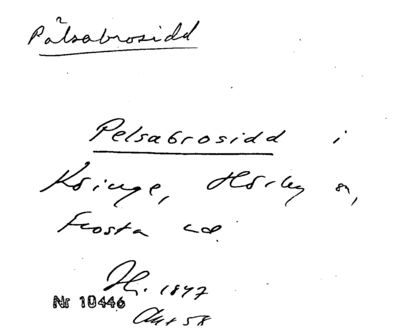 Pålsabrosidd
Pelsabrosidd i
Kringe, Hörby sn,
Frosta hd.
H. 1847
Nr 10446
Akt 58